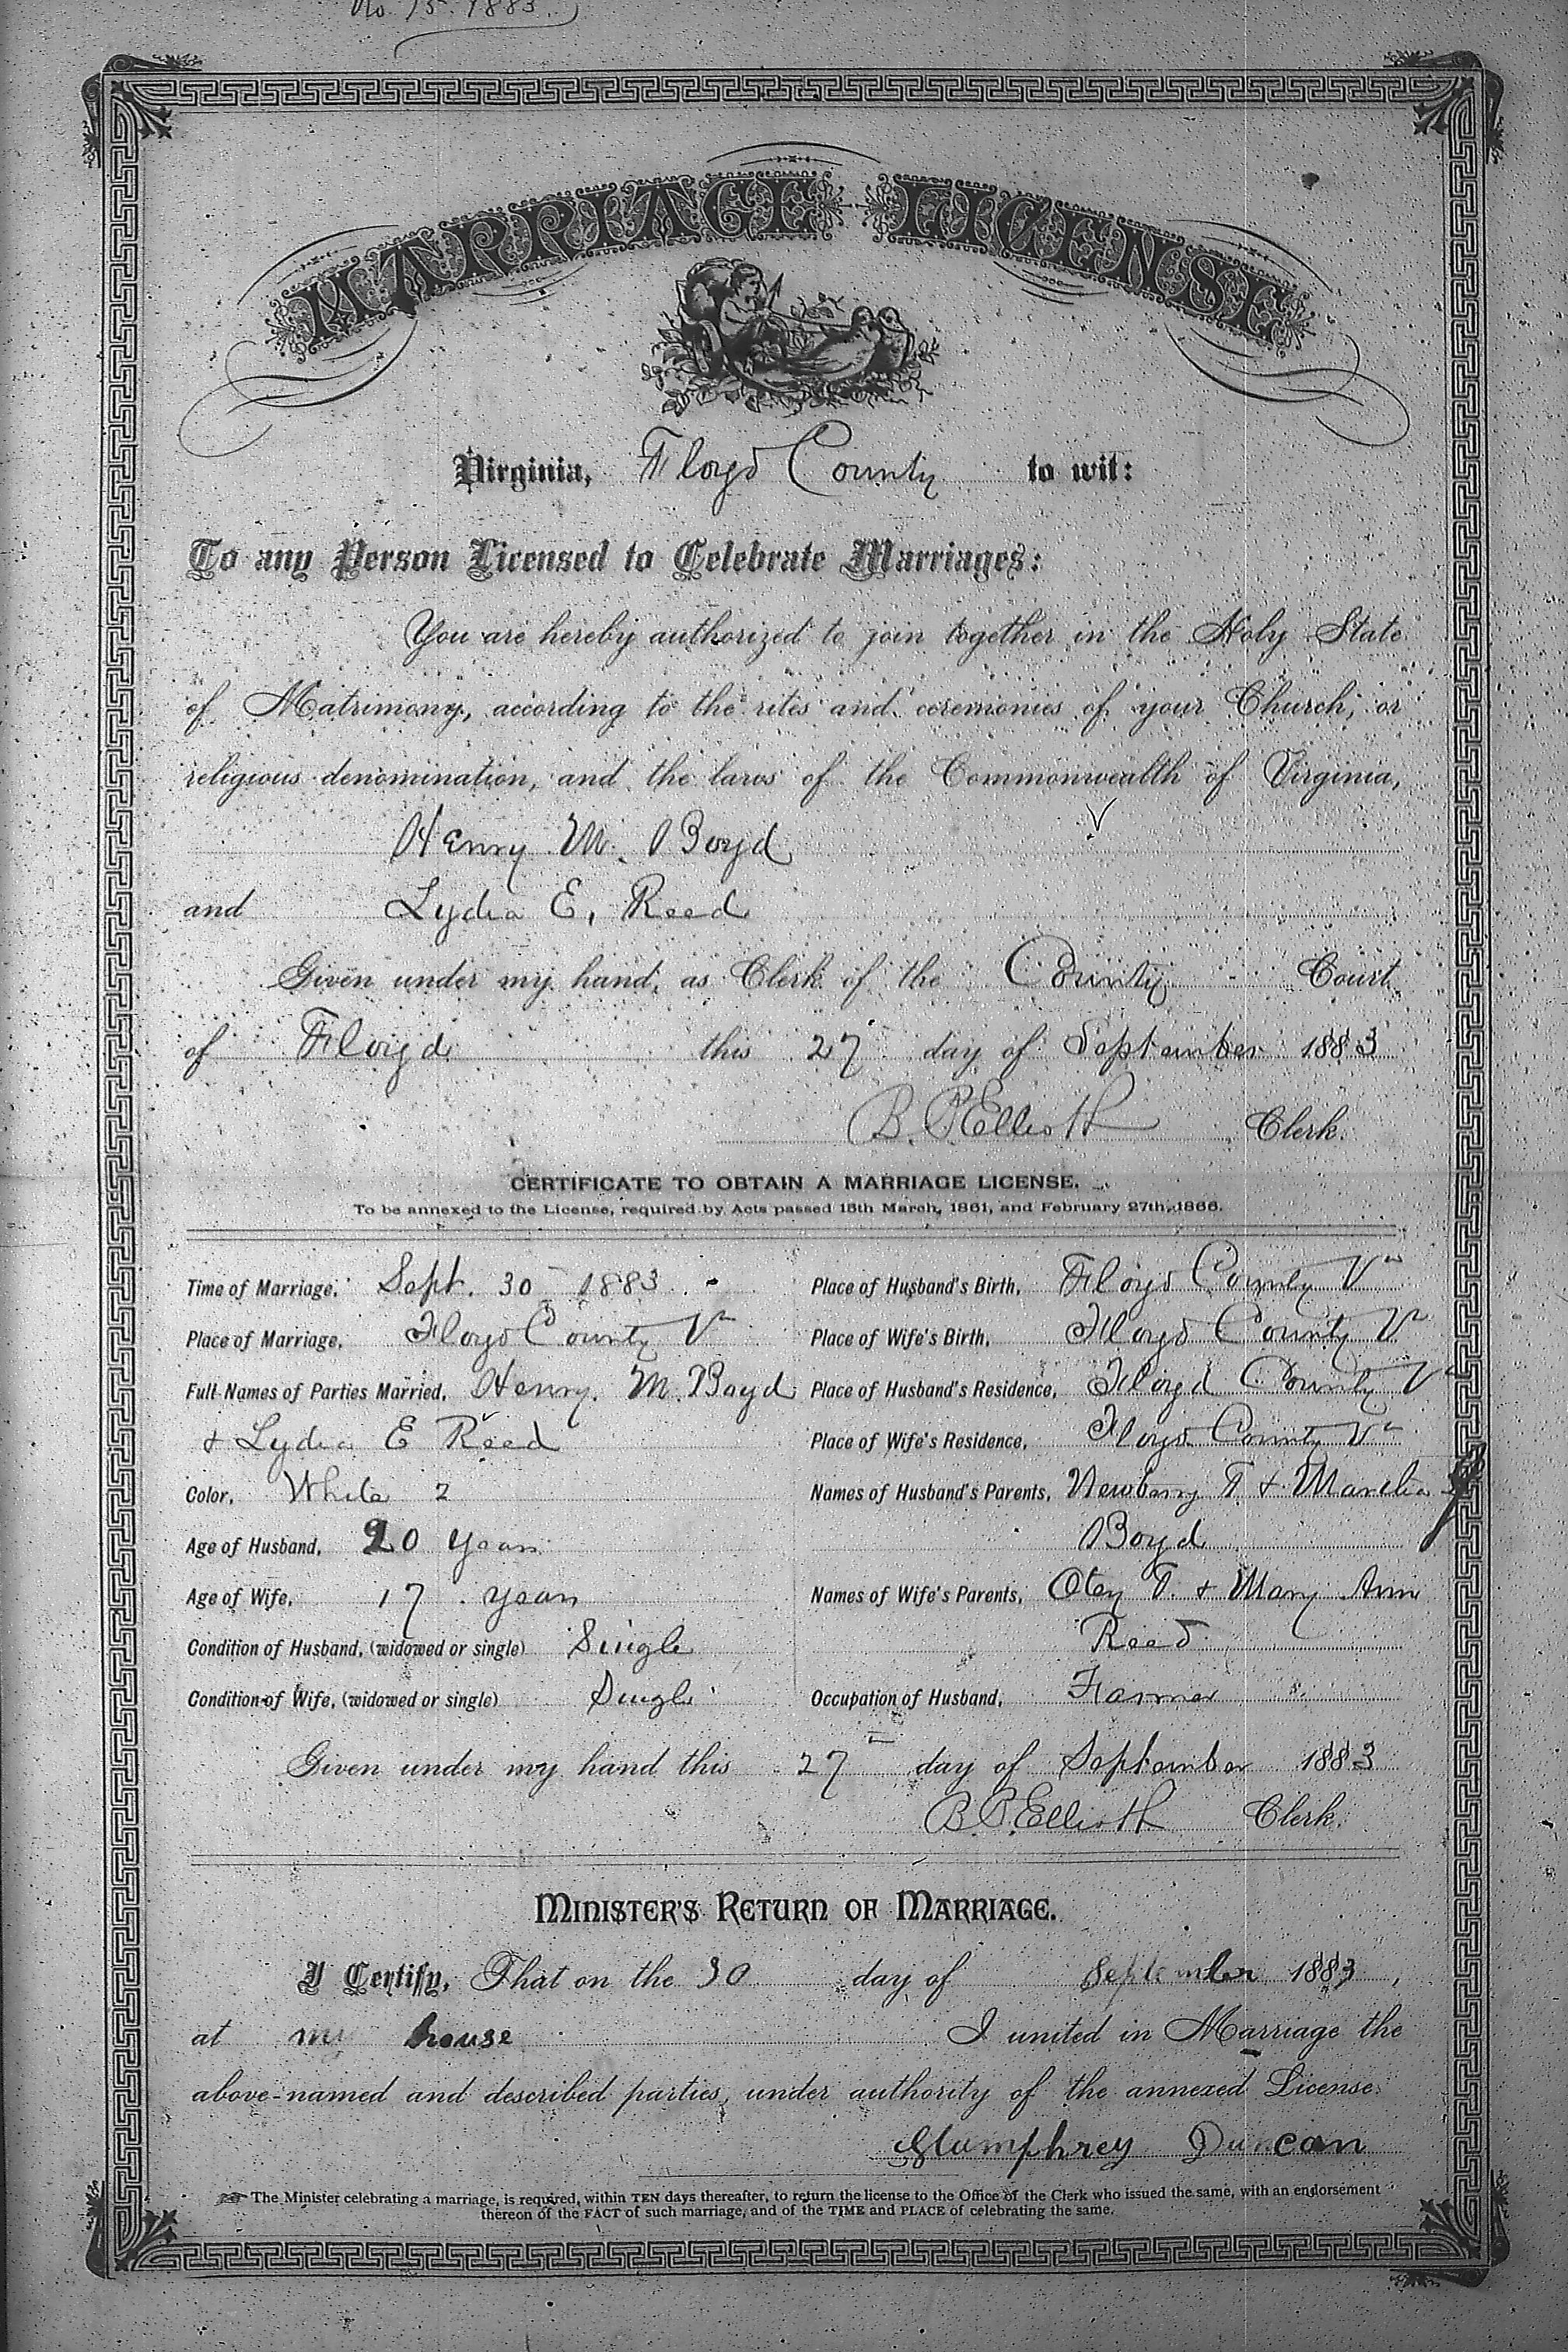 No. 75. 1883.
MARRIAGE LICENSE
Virginia, Floyd County to wit:
To any Person Licensed to Celebrate Marriages:
You are hereby authorized to join together in the Holy State
of Matrimony, according to the rites and ceremonies of your Church, or
religious denomination, and the laws of the Commonwealth of Virginia,
Henry M. Boyd
and Lydia E. Reed
Given under my hand, as Clerk of the County Court
of Floyd this 27 day of September 1883
B. P. Elliott Clerk.
CERTIFICATE TO OBTAIN A MARRIAGE LICENSE.
To be annexed to the License, required by Acts passed 15th March, 1861, and February 27th, 1866.
Time of Marriage, Sept. 30 1883
Place of Marriage, Floyd County Va
Full Names of Parties Married, Henry. M. Boyd
+ Lydia E Reed
Color, White 2
Age of Husband, 20 years
Age of Wife, 17 years
Condition of Husband, (widowed or single) Single
Condition of Wife, (widowed or single) Single
Place of Husband's Birth, Floyd County Va
Place of Wife's Birth, Floyd County Va
Place of Husband's Residence, Floyd County Va
Place of Wife's Residence, Floyd County Va
Names of Husband's Parents, Newberry T +
Boyd
Names of Wife's Parents, Otey T. + Mary Ann
Reed
Occupation of Husband, Farmer
Given under my hand this 27 day of September 1883
B. P. Elliott Clerk.
MINISTER'S RETURN OF MARRIAGE.
I Certify, That on the 30 day of September 1883,
at my house I united in Marriage the
above-named and described parties, under authority of the annexed License.
Humphrey Duncan
The Minister celebrating a marriage, is required, within TEN days thereafter, to return the license to the Office of the Clerk who issued the same, with an endorsement
thereon of the FACT of such marriage, and of the TIME and PLACE of celebrating the same.